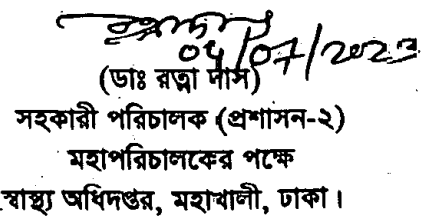 05/07/2023
(ডাঃ রত্না দাস)
সহকারী পরিচালক (প্রশাসন-২)
মহাপরিচালকের পক্ষে
স্বাস্থ্য অধিদপ্তর, মহাখালী, ঢাকা।